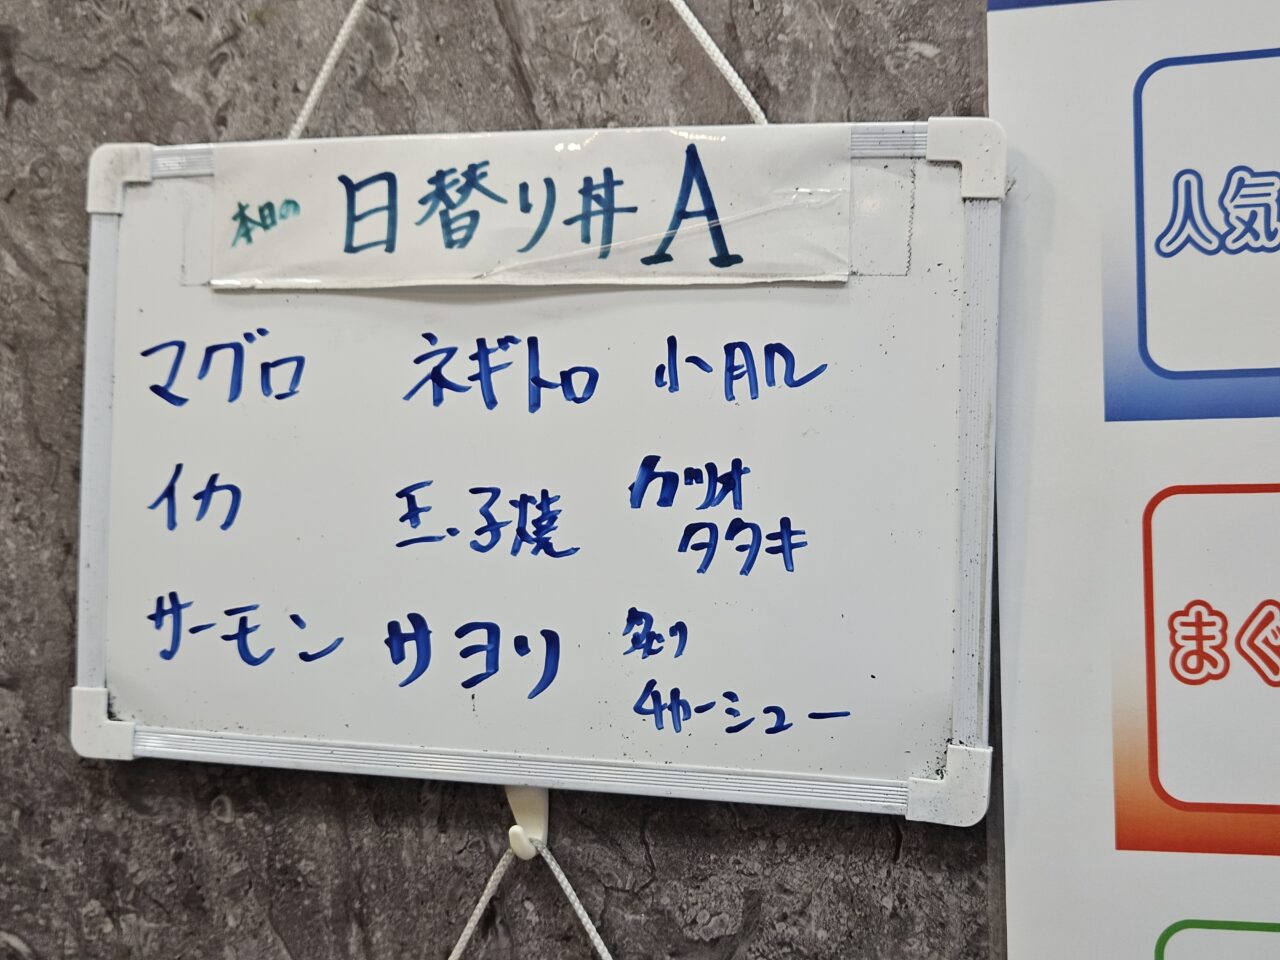 本日の 日替り丼 A
マグロ ネギトロ 小肌
イカ 玉子焼 カツオ
タタキ
サーモン サヨリ 炙り
チャーシュー
人気
まぐ